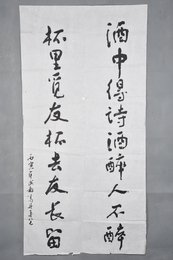 酒中得詩酒醉人不醉
杯里覓友杯去友長留